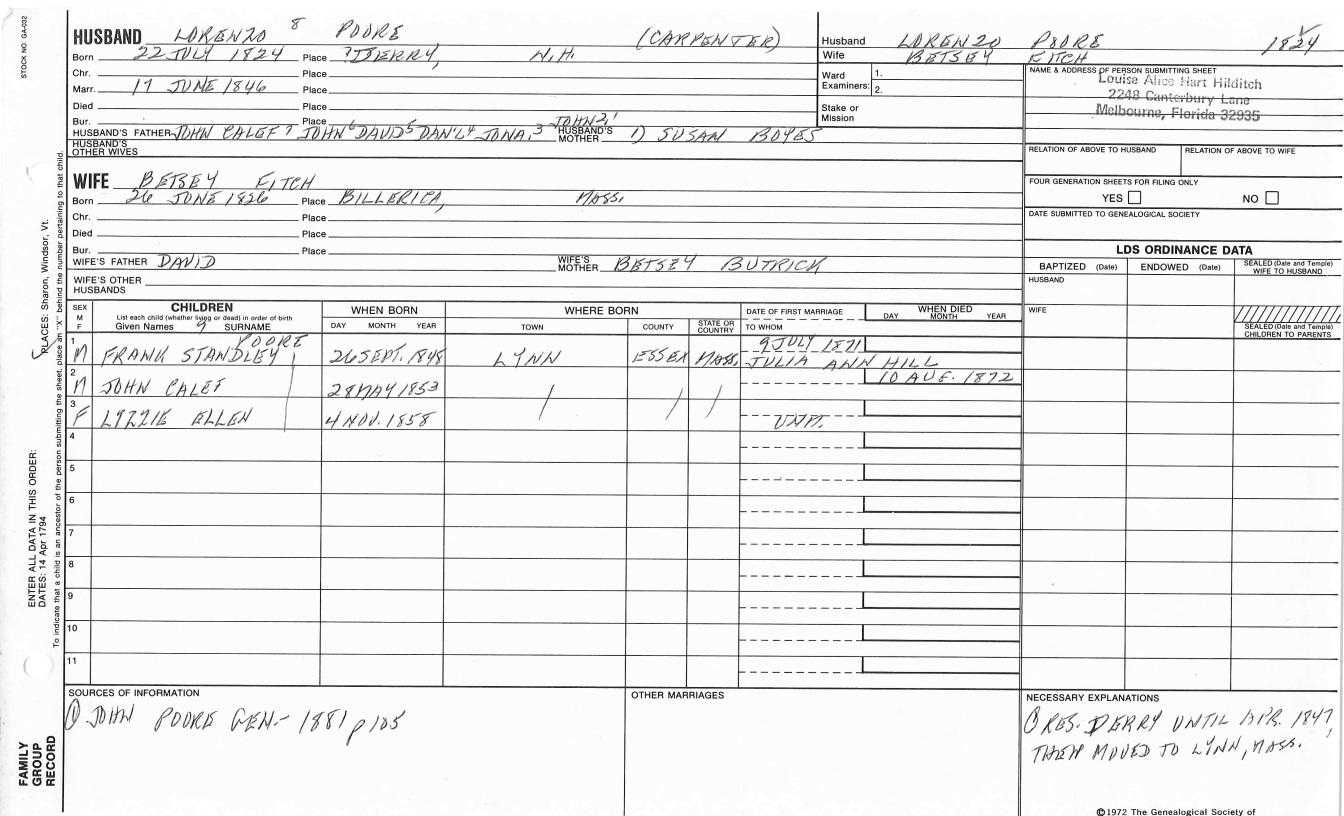 STOCK NO GA-032
HUSBAND LORENZO 8 POORE (CARPENTER)
Born 22 JULY 1824 Place ?DERRY, N.H.
Chr. Place
Marr. 17 JUNE 1846 Place
Died Place
Bur. Place
HUSBAND'S FATHER JOHN CALEF 7 JOHN 6 DAVID 5 DAN'L 4 JONA. 3 JOHN 2, 1 HUSBAND'S MOTHER 1) SUSAN BOYES
HUSBAND'S OTHER WIVES
Husband LORENZO POORE 1824
Wife BETSEY FITCH
Ward Examiners: 1.
2.
Stake or Mission
NAME & ADDRESS OF PERSON SUBMITTING SHEET
Louise Alice Hart Hilditch
2248 Canterbury Lane
Melbourne, Florida 32935
RELATION OF ABOVE TO HUSBAND RELATION OF ABOVE TO WIFE
FOUR GENERATION SHEETS FOR FILING ONLY
YES NO
DATE SUBMITTED TO GENEALOGICAL SOCIETY
WIFE BETSEY FITCH
Born 26 JUNE 1826 Place BILLERICA, MASS.
Chr. Place
Died Place
Bur. Place
WIFE'S FATHER DAVID WIFE'S MOTHER BETSEY BUTRICK
WIFE'S OTHER HUSBANDS
LDS ORDINANCE DATA
BAPTIZED (Date) ENDOWED (Date) SEALED (Date and Temple) WIFE TO HUSBAND
HUSBAND
WIFE
SEALED (Date and Temple) CHILDREN TO PARENTS
SEX M F
CHILDREN
List each child (whether living or dead) in order of birth
Given Names 9 SURNAME
WHEN BORN
DAY MONTH YEAR
WHERE BORN
TOWN COUNTY STATE OR COUNTRY
DATE OF FIRST MARRIAGE
TO WHOM
WHEN DIED
DAY MONTH YEAR
1 M FRANK STANDLEY POORE 26 SEPT. 1848 LYNN ESSEX MASS. 9 JULY 1871
JULIA ANN HILL
2 M JOHN CALEF 28 MAY 1853 10 AUG. 1872
3 F LIZZIE ELLEN 4 NOV. 1858 UNM.
4
5
6
7
8
9
10
11
SOURCES OF INFORMATION
① JOHN POORE GEN- 1881 p 105
OTHER MARRIAGES
NECESSARY EXPLANATIONS
① RES. DERRY UNTIL APR. 1847,
THEN MOVED TO LYNN, MASS.
©1972 The Genealogical Society of
PLACES: Sharon, Windsor, Vt.
To indicate that a child is an ancestor of the person submitting the sheet, place an "X" behind the number pertaining to that child.
ENTER ALL DATA IN THIS ORDER:
DATES: 14 Apr 1794
FAMILY
GROUP
RECORD